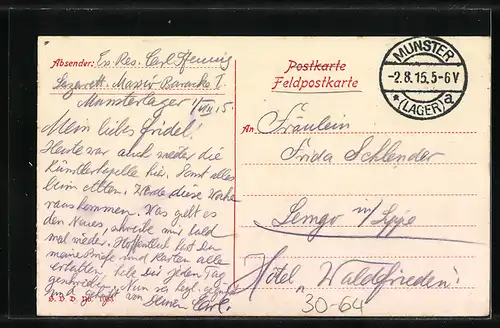 Absender: Ers. Res. Carl Pfennig
Lazarett. Massiv Baracke I
Munsterlager 1/VIII 15.
Mein liebes Fridel!
Heute war auch wieder die
Künstlerkapelle hier. Sonst alles
beim alten. Werde diese Woche
rauskommen. Was gibt es
den Neues, schreibe mir bald
mal wieder. Hoffentlich hast Du
meine Briefe und Karten alle
erhalten, habe Dir jeden Tag
geschrieben. Nun sei hzgl. gegrüßt
und geküßt von
Deinem Carl.
Postkarte
Feldpostkarte
MUNSTER
-2.8.15.5-6V
*(LAGER)a
An Fräulein
Frida Schlender
Lemgo i/Lippe
Hotel "Waldfrieden"
30-64